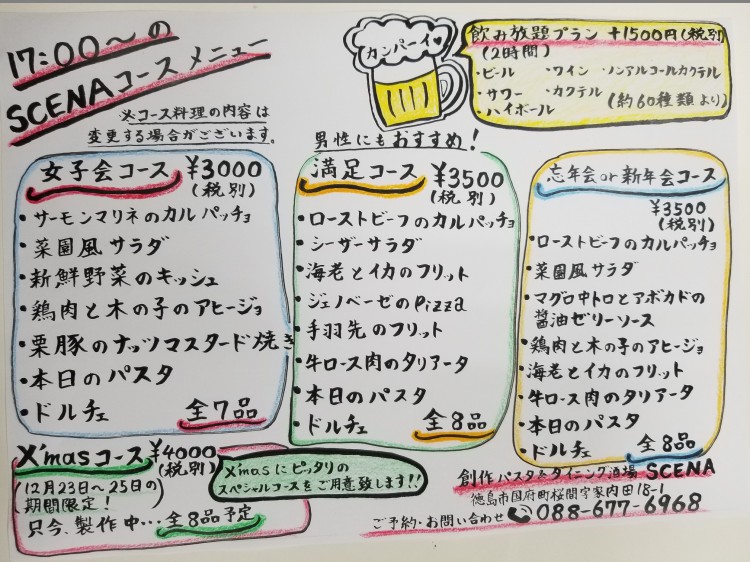 17:00〜の
SCENAコースメニュー
※コース料理の内容は
変更する場合がございます。
カンパーイ♡
飲み放題プラン +1500円(税別)
(2時間)
・ビール ・ワイン ・ノンアルコールカクテル
・サワー ・カクテル
・ハイボール (約60種類より)
女子会コース ¥3000
(税別)
・サーモンマリネのカルパッチョ
・菜園風サラダ
・新鮮野菜のキッシュ
・鶏肉と木の子のアヒージョ
・栗豚のナッツマスタード焼き
・本日のパスタ
・ドルチェ 全7品
男性にもおすすめ!
満足コース ¥3500
(税別)
・ローストビーフのカルパッチョ
・シーザーサラダ
・海老とイカのフリット
・ジェノベーゼのPizza
・手羽先のフリット
・牛ロース肉のタリアータ
・本日のパスタ
・ドルチェ 全8品
忘年会or新年会コース
¥3500
(税別)
・ローストビーフのカルパッチョ
・菜園風サラダ
・マグロ中トロとアボカドの
醤油ゼリーソース
・鶏肉と木の子のアヒージョ
・海老とイカのフリット
・牛ロース肉のタリアータ
・本日のパスタ
・ドルチェ 全8品
X'masコース ¥4000
(税別)
(12月23日〜25日の)
期間限定!
只今、製作中… 全8品予定
X'masにピッタリの
スペシャルコースをご用意致します!!
創作パスタ&ダイニング酒場 SCENA
徳島市国府町桜間字家内田18-1
ご予約・お問い合わせ 088-677-6968